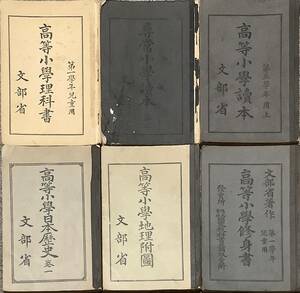 高等小學理科書
第一學年兒童用
文部省
尋常小學讀本
高等小學讀本
文部省
高等小學日本歷史 卷一
文部省
高等小學地理附圖
文部省
文部省著作
高等小學修身書
第一學年
兒童用